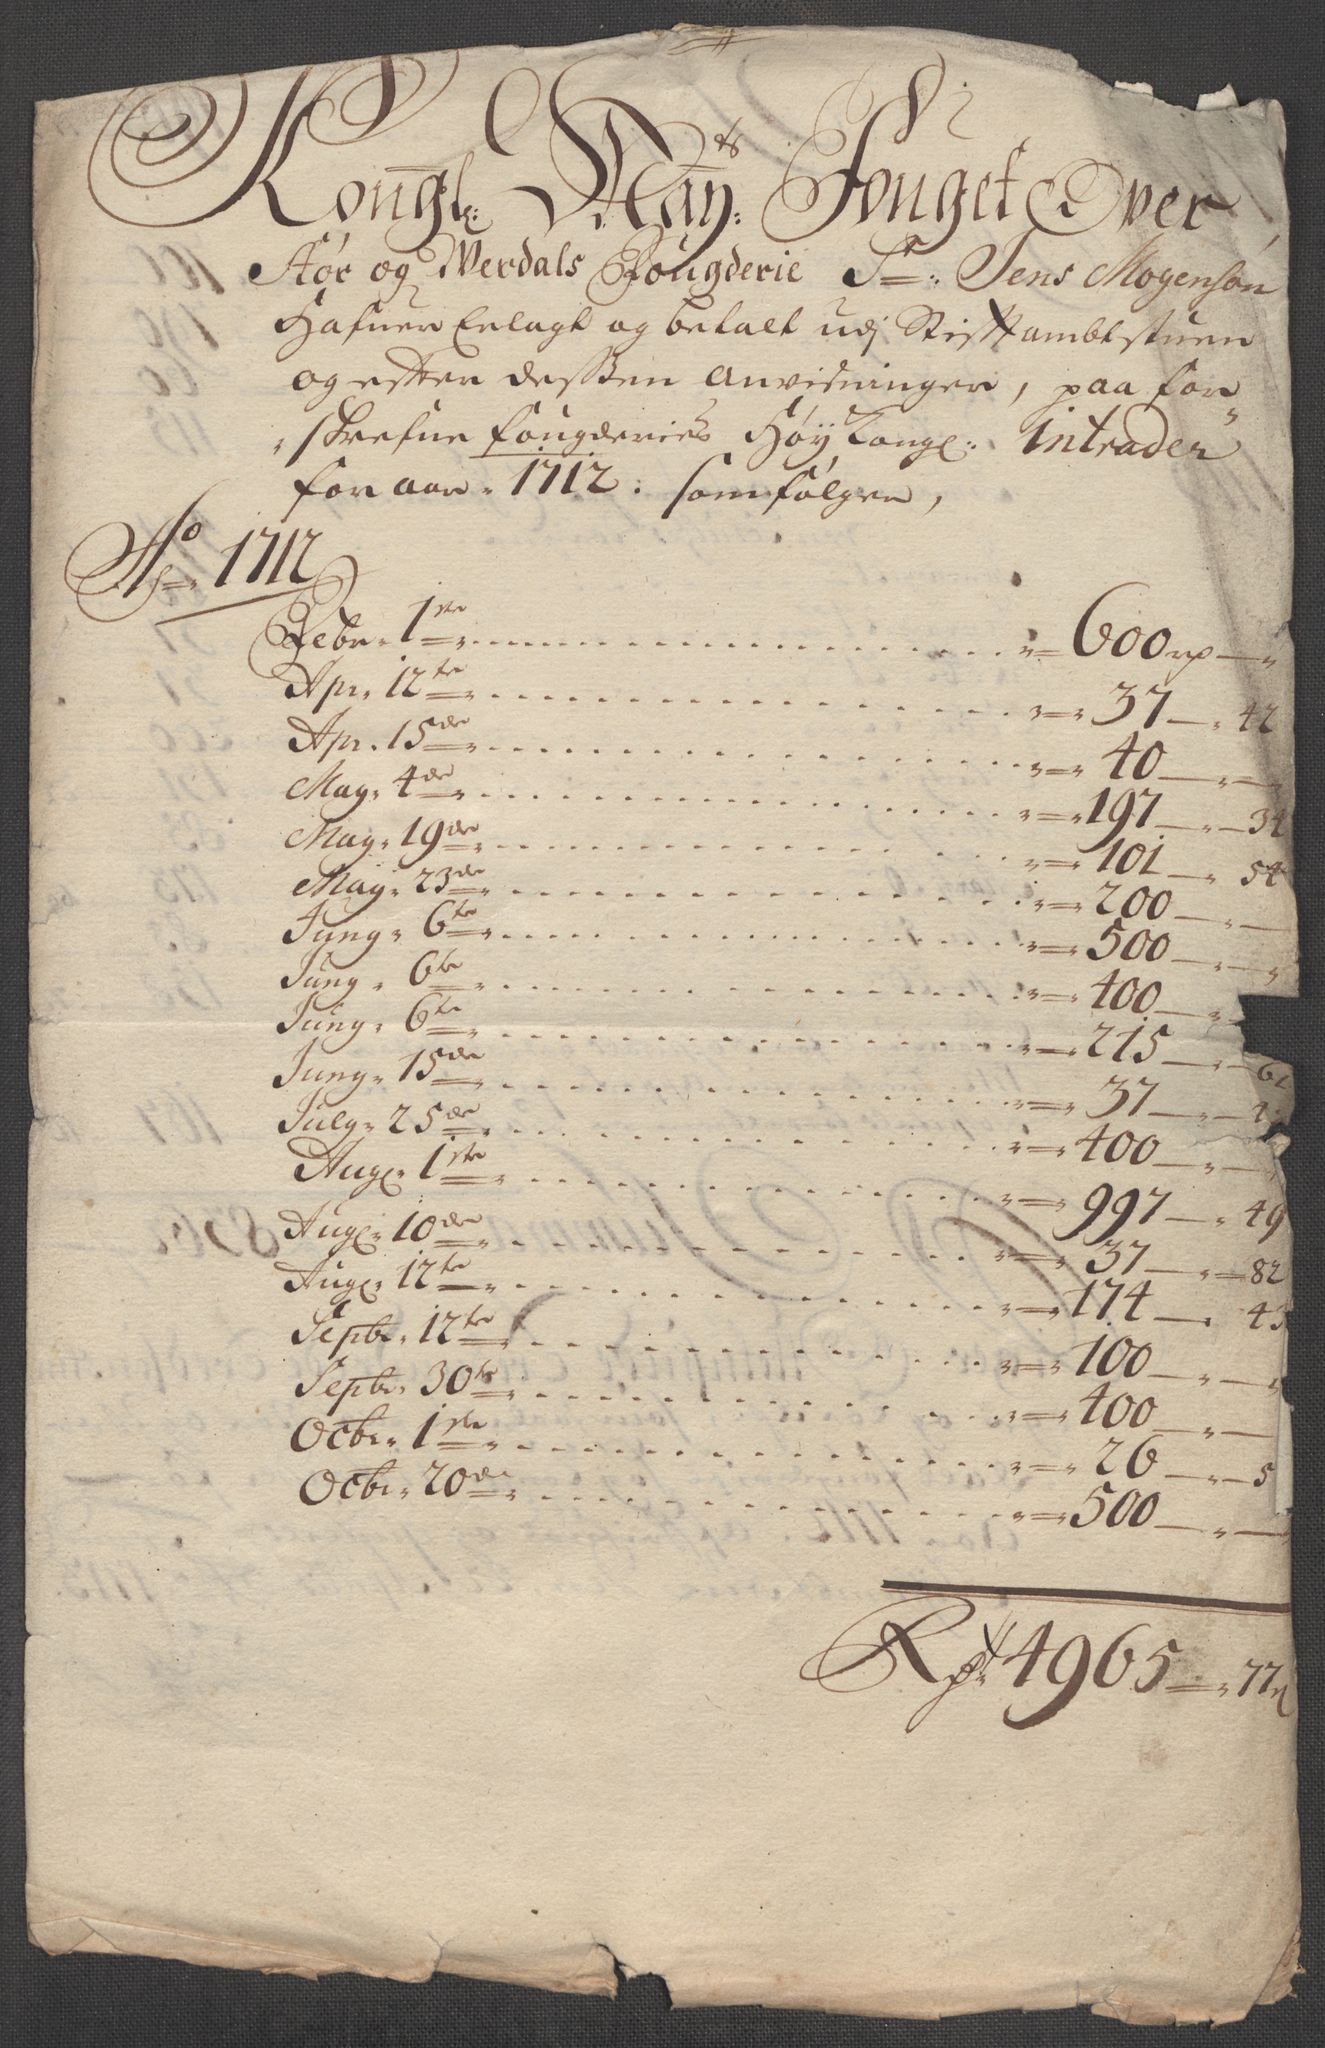 Kongl: May:ts Fouget Over
Stör og Werdals Fougderie Sr: Jens Mogensøn
Hafuer Erlagt og betalt udj Stiftambtstuen
og efter desen Anvisninger, paa for
skrefne fougderies Høy Kongl: Intrader
for aar 1712. som følger,
Ao 1712
Febr. 1ste 600 rp
Apr. 12te 37 42
Apr. 15de 40
May. 4de 197 34
May. 19de 101 54
May. 23de 200
Juny. 6te 500
Juny. 6te 400
Juny. 6te 215
Juny. 15de 37
July. 25de 400
Aug. 1ste 997 49
Aug. 10de 37 82
Aug. 12te 174
Septbr. 12te 100
Septbr. 30te 400
Octbr. 1ste 26 5
Octbr. 20de 500
Rp 4965 77